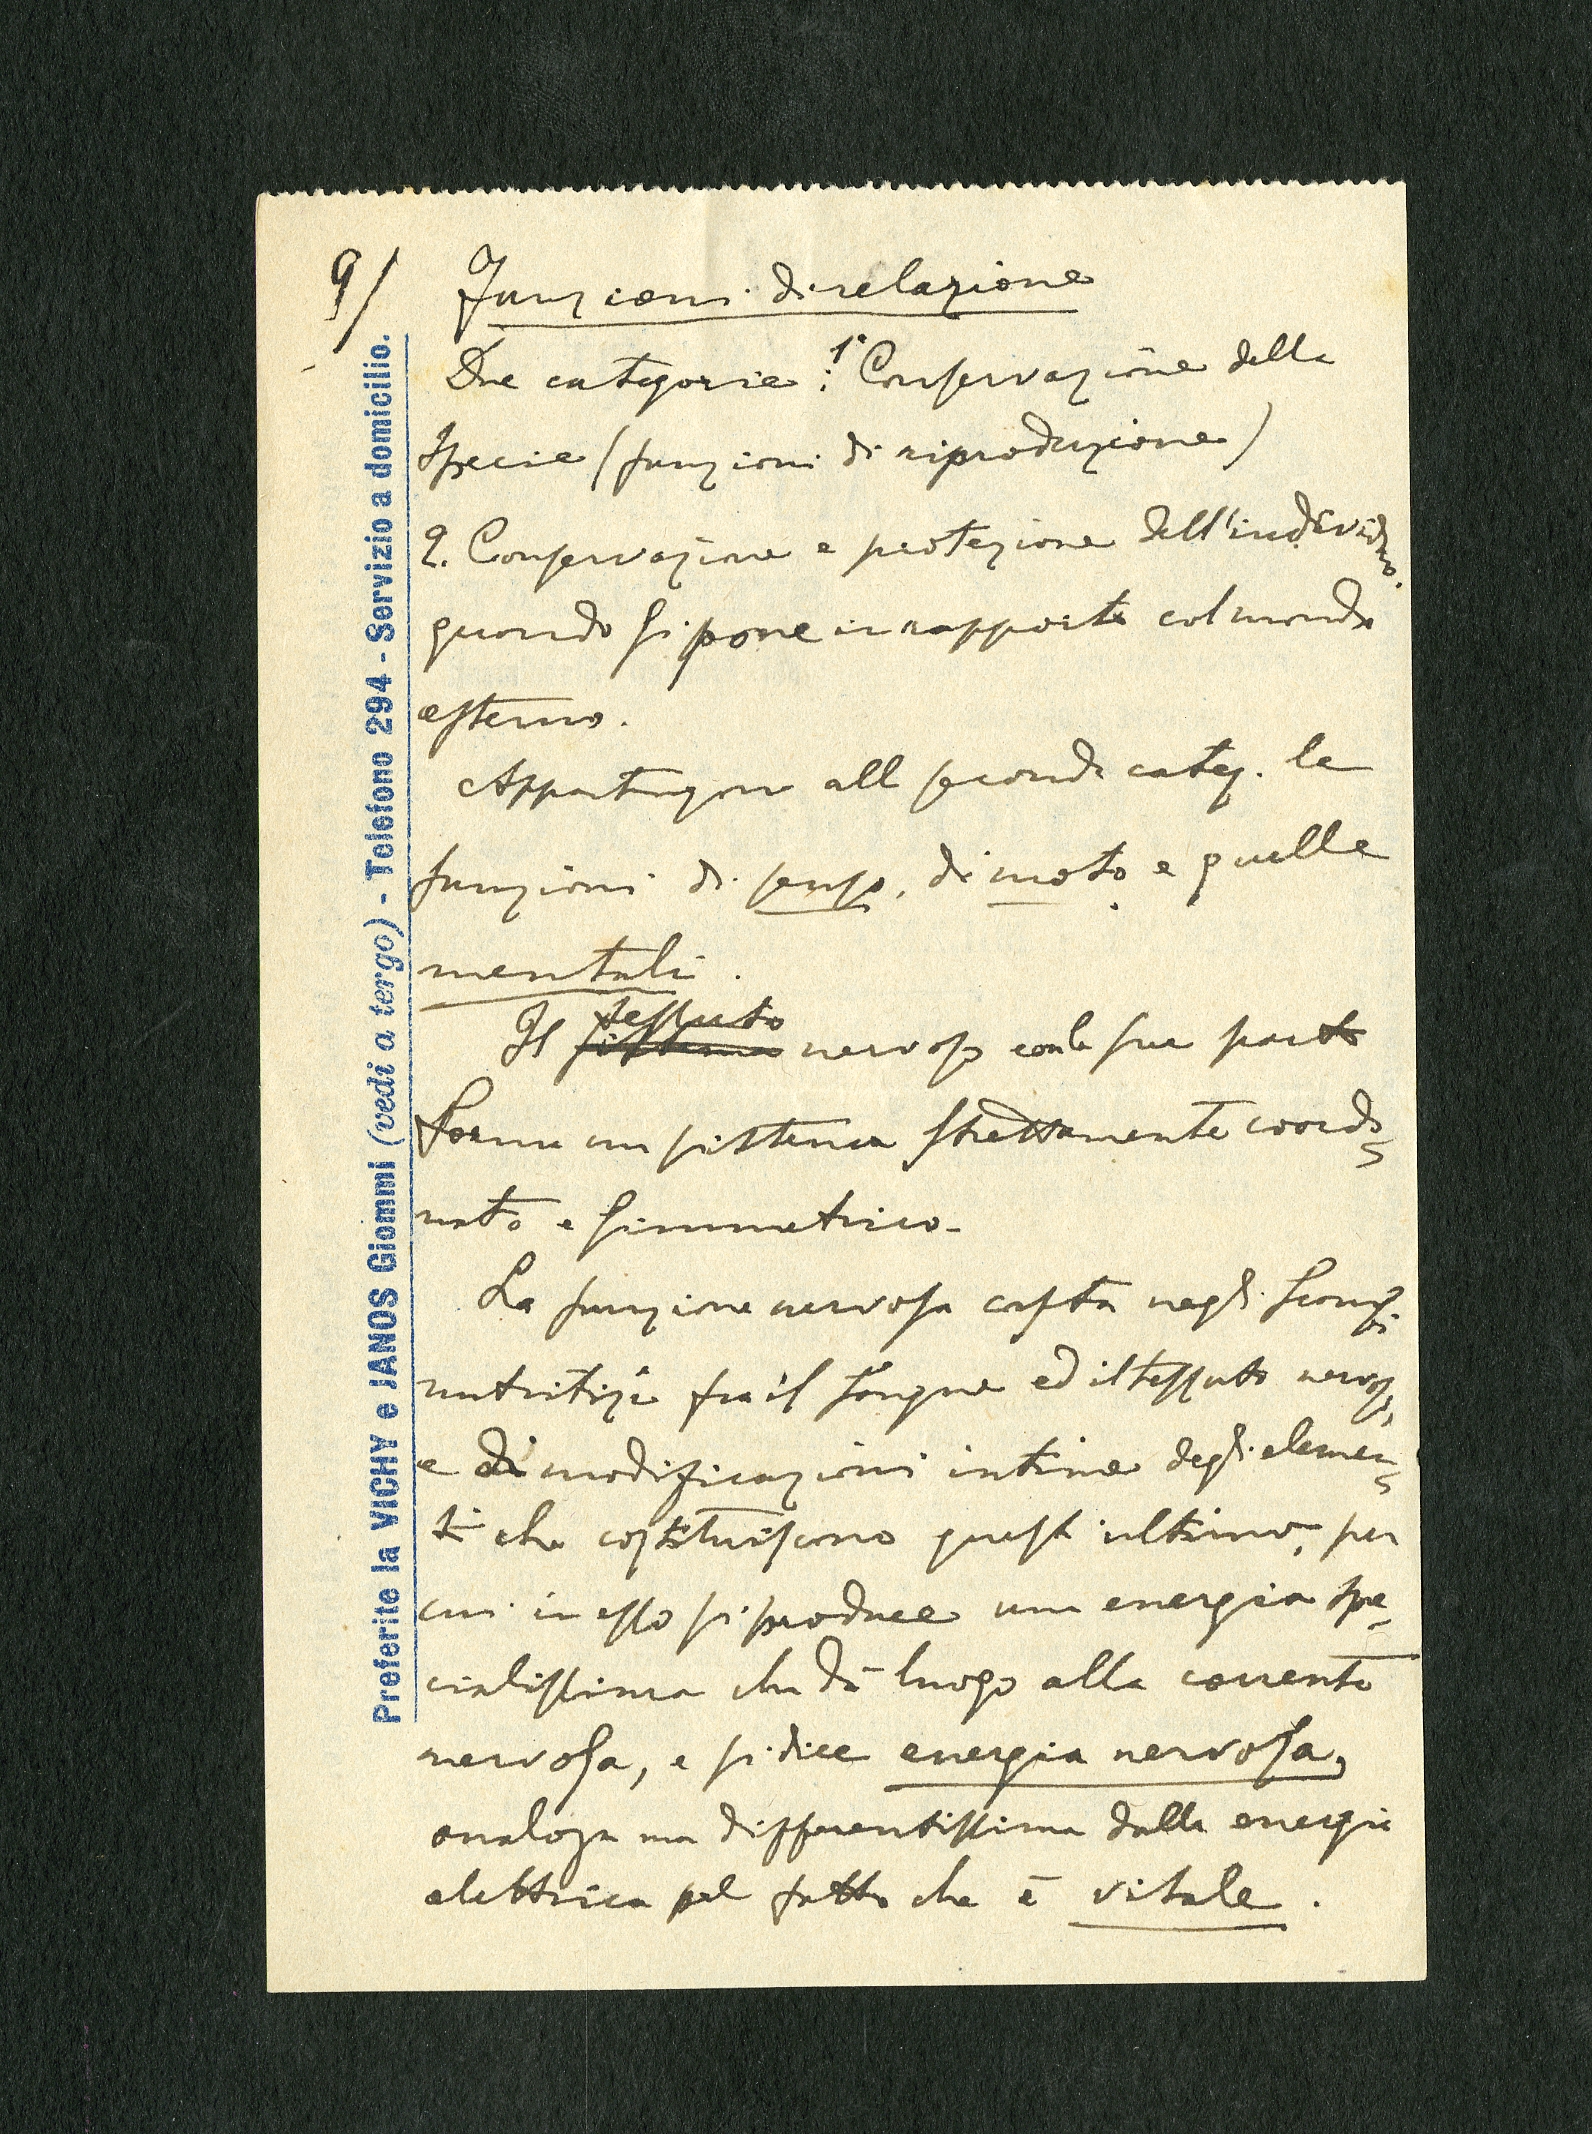 9/ Funzioni di relazione
Due categorie: 1° Conservazione della
specie (funzioni di riproduzione)
2. Conservazione e protezione dell'individuo.
quando si pone in rapporto col mondo
esterno.
Appartengono alla seconda categ. le
funzioni di senso, di moto e quelle
mentali.
Il sistema tessuto nervoso con le sue parti
forma un sistema strettamente coordi
nato e simmetrico.
La funzione nervosa consta negli scambi
nutritizi fra il sangue ed il tessuto nervoso,
e di modificazioni intime degli elemen
ti che costituiscono quest'ultimo, per
cui in esso si produce una energia spe-
cialissima che dà luogo alla corrente
nervosa, e si dice energia nervosa,
analoga ma differentissima dalla energia
elettrica pel fatto che è vitale.
Preferite la VICHY e IANOS Giommi (vedi a tergo) - Telefono 294 - Servizio a domicilio.